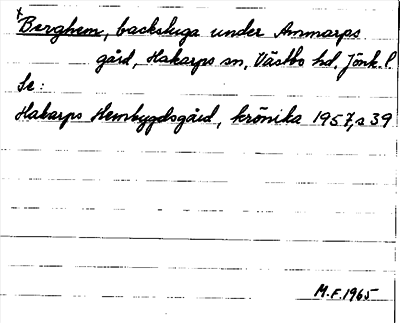 †Berghem, backstuga under Ammarps
gård, Hakarps sn, Västbo hd, Jönk. l.
Se:
Hakarps Hembygdsgård, krönika 1957, s 39
M.F. 1965